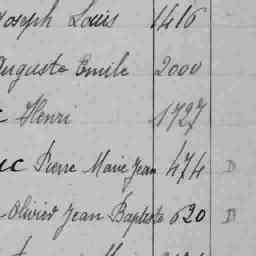 Joseph Louis 1416
Auguste Emile 2000
Henri 1727
uc Pierre Marie Jean 474 D
Olivier Jean Baptiste 620 D